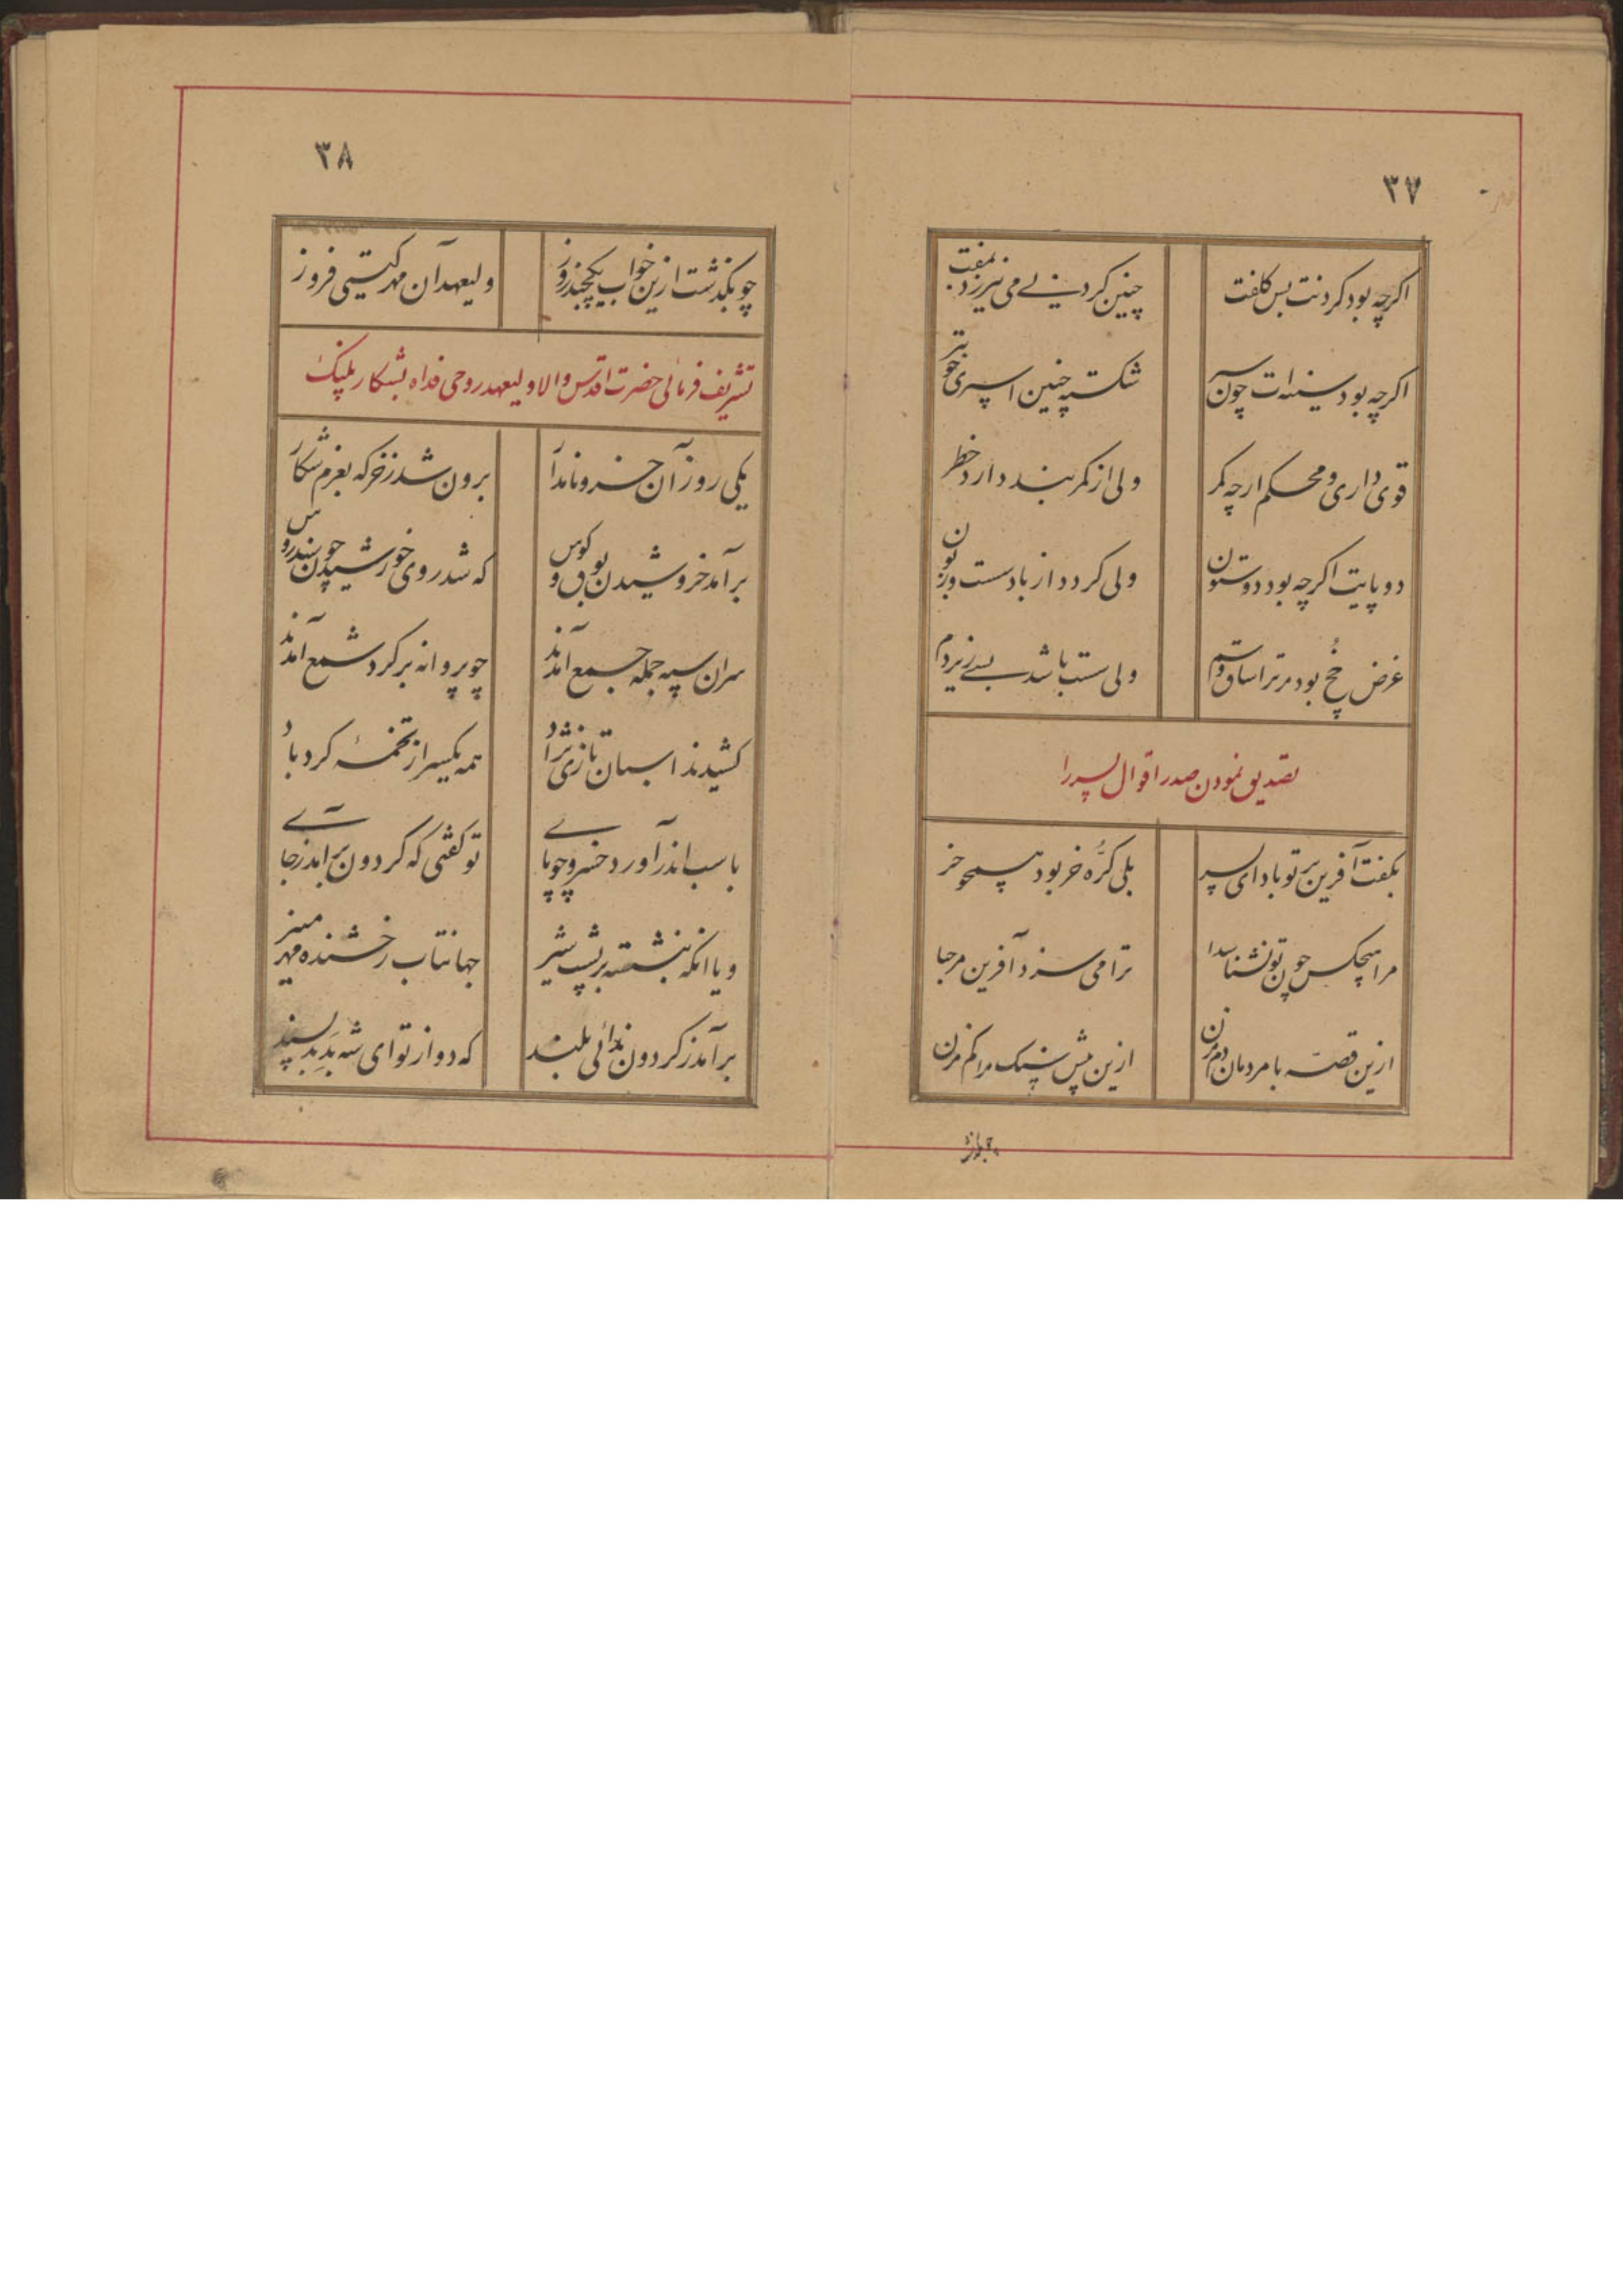 ۳۷
اگرچه بود گردنت بس کلفت چنین گردنی می نیرزد بمفت
اگرچه بود سینه‌ات چون سپر شکسته چنین اسپری خوبتر
قوی داری و محکم ارچه کمر ولی از کمربند دارد خطر
دو پایت اگرچه بود دو ستون ولی گردد از باد سست و زبون
غرض خ بود مر ترا ساق و سم ولی سست باشد بسی زیر دم
تصدیق نمودن صدر اقوال پسر را
بگفت آفرین بر تو باد ای پسر بلی کُرّه خر بود همچو خر
مرا هیچکس چون تو نشناسدا ترا می سزد آفرین مرحبا
ازین قصه با مردمان دم مزن ازین بیش سنگ مرا کم مزن
۳۸
چو بگذشت ازین خواب یکچند روز ولیعهد آن مهر گیتی فروز
تشریف فرمائی حضرت اقدس والا ولیعهد روحی فداه بشکار پلنگ
یکی روز آن خسرو نامدار برون شد ز خرگه بعزم شکار
برآمد خروشیدن بوق و کوس که شد روی خورشید چون سندروس
سران سپه جمله جمع آمدند چو پروانه بر گرد شمع آمدند
کشیدند اسبان تازی نژاد همه یکسر از تخمهٔ گردباد
باسب اندر آورد خسرو چو پای تو گفتی که گردون برآمد ز جای
و یا آنکه بنشسته بر پشت شیر جهانتاب رخشنده مهر منیر
برآمد ز گردون ندائی بلند که دور از تو ای شه بَدِ بد پسند